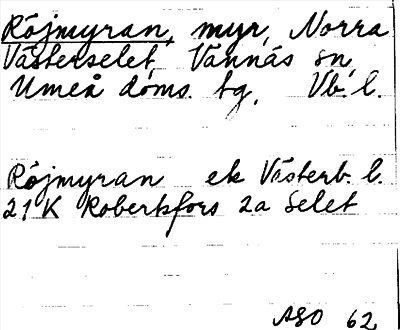 Röjmyran, myr, Norra
Västerselet, Vännäs sn,
Umeå doms. tg, Vb. l.
Röjmyran ek Västerb. l.
21K Robertsfors 2a Selet
ASO 62